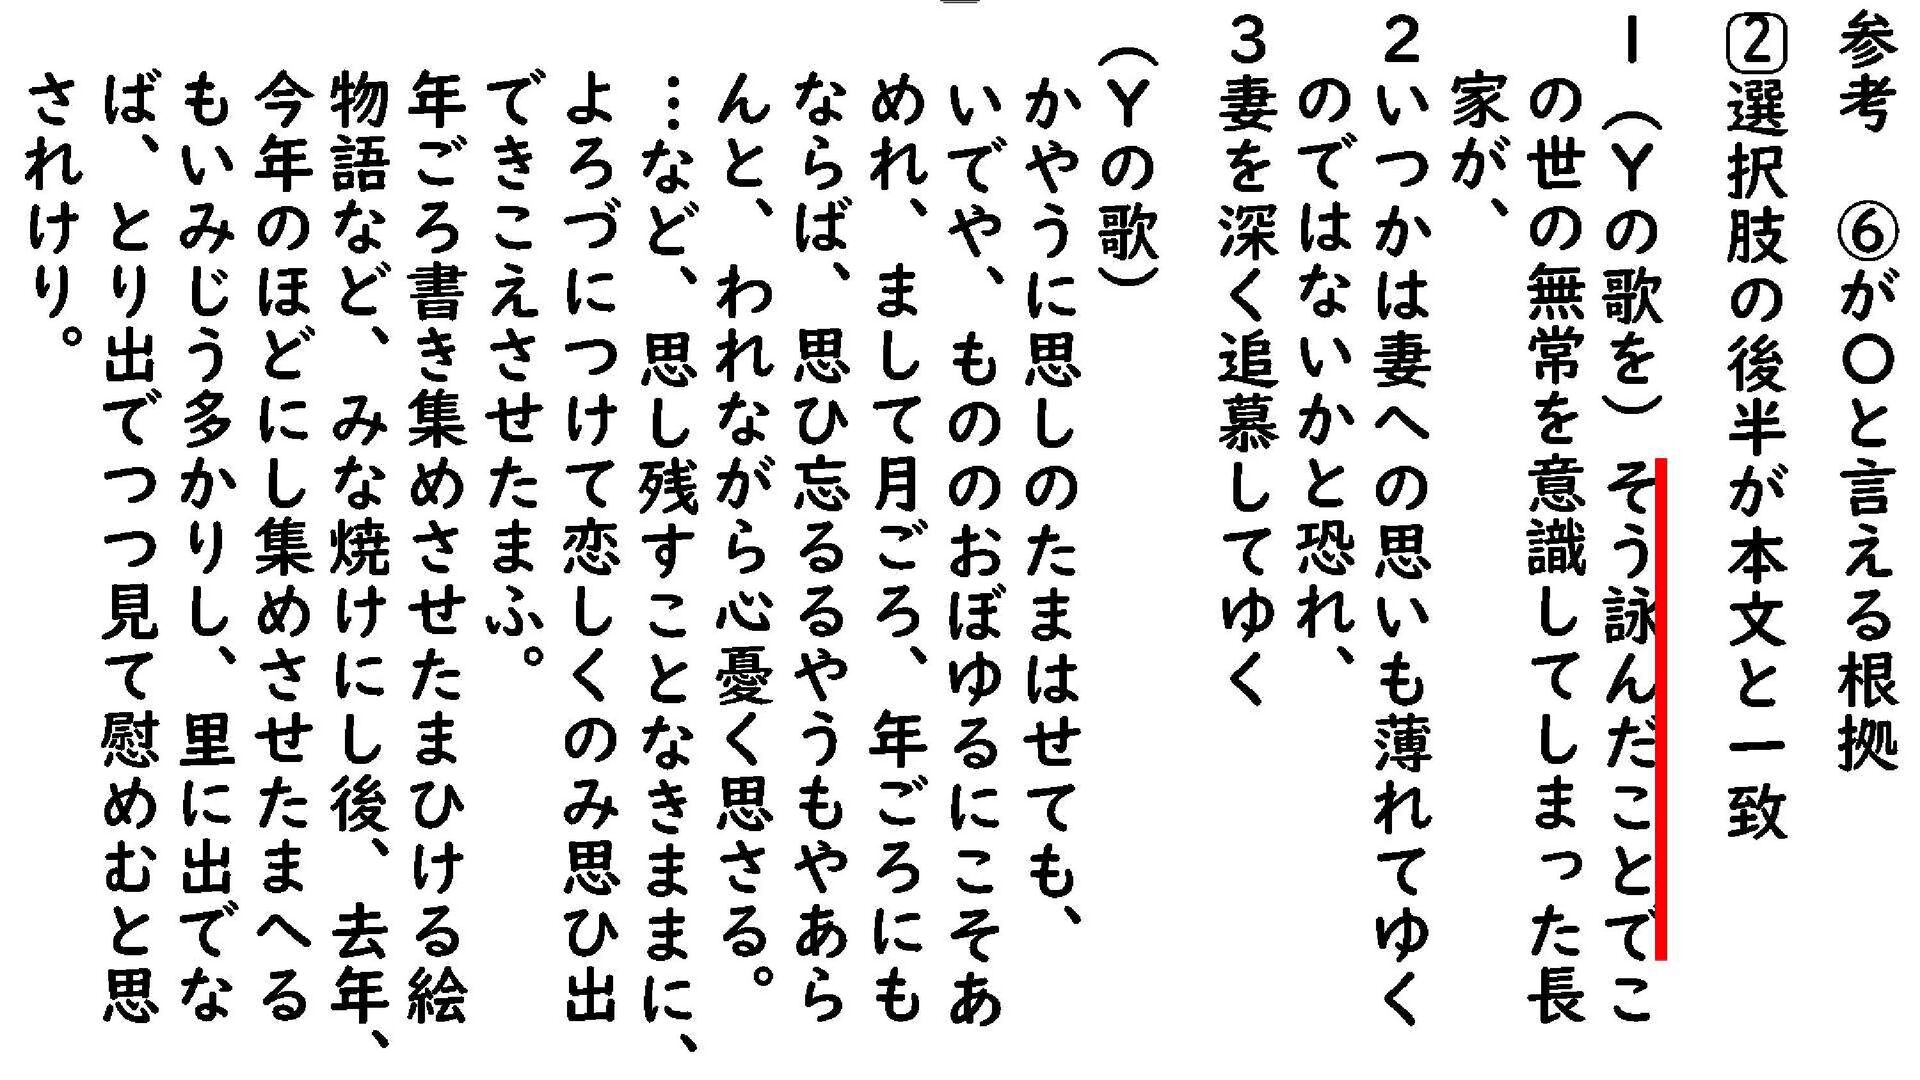 参考　⑥が〇と言える根拠
②選択肢の後半が本文と一致
１（Ｙの歌を）そう詠んだことでこ
の世の無常を意識してしまった長
家が、
２いつかは妻への思いも薄れてゆく
のではないかと恐れ、
３妻を深く追慕してゆく
（Ｙの歌）
かやうに思しのたまはせても、
いでや、もののおぼゆるにこそあ
めれ、まして月ごろ、年ごろにも
ならば、思ひ忘るるやうもやあら
んと、われながら心憂く思さる。
…など、思し残すことなきままに、
よろづにつけて恋しくのみ思ひ出
できこえさせたまふ。
年ごろ書き集めさせたまひける絵
物語など、みな焼けにし後、去年、
今年のほどにし集めさせたまへる
もいみじう多かりし、里に出でな
ば、とり出でつつ見て慰めむと思
されけり。